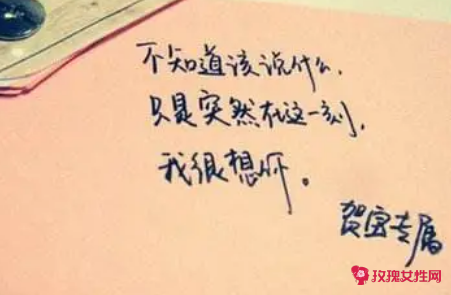 不知道该说什么,
只是突然在这一刻,
我很想你。
贺宝专属
玫瑰女性网